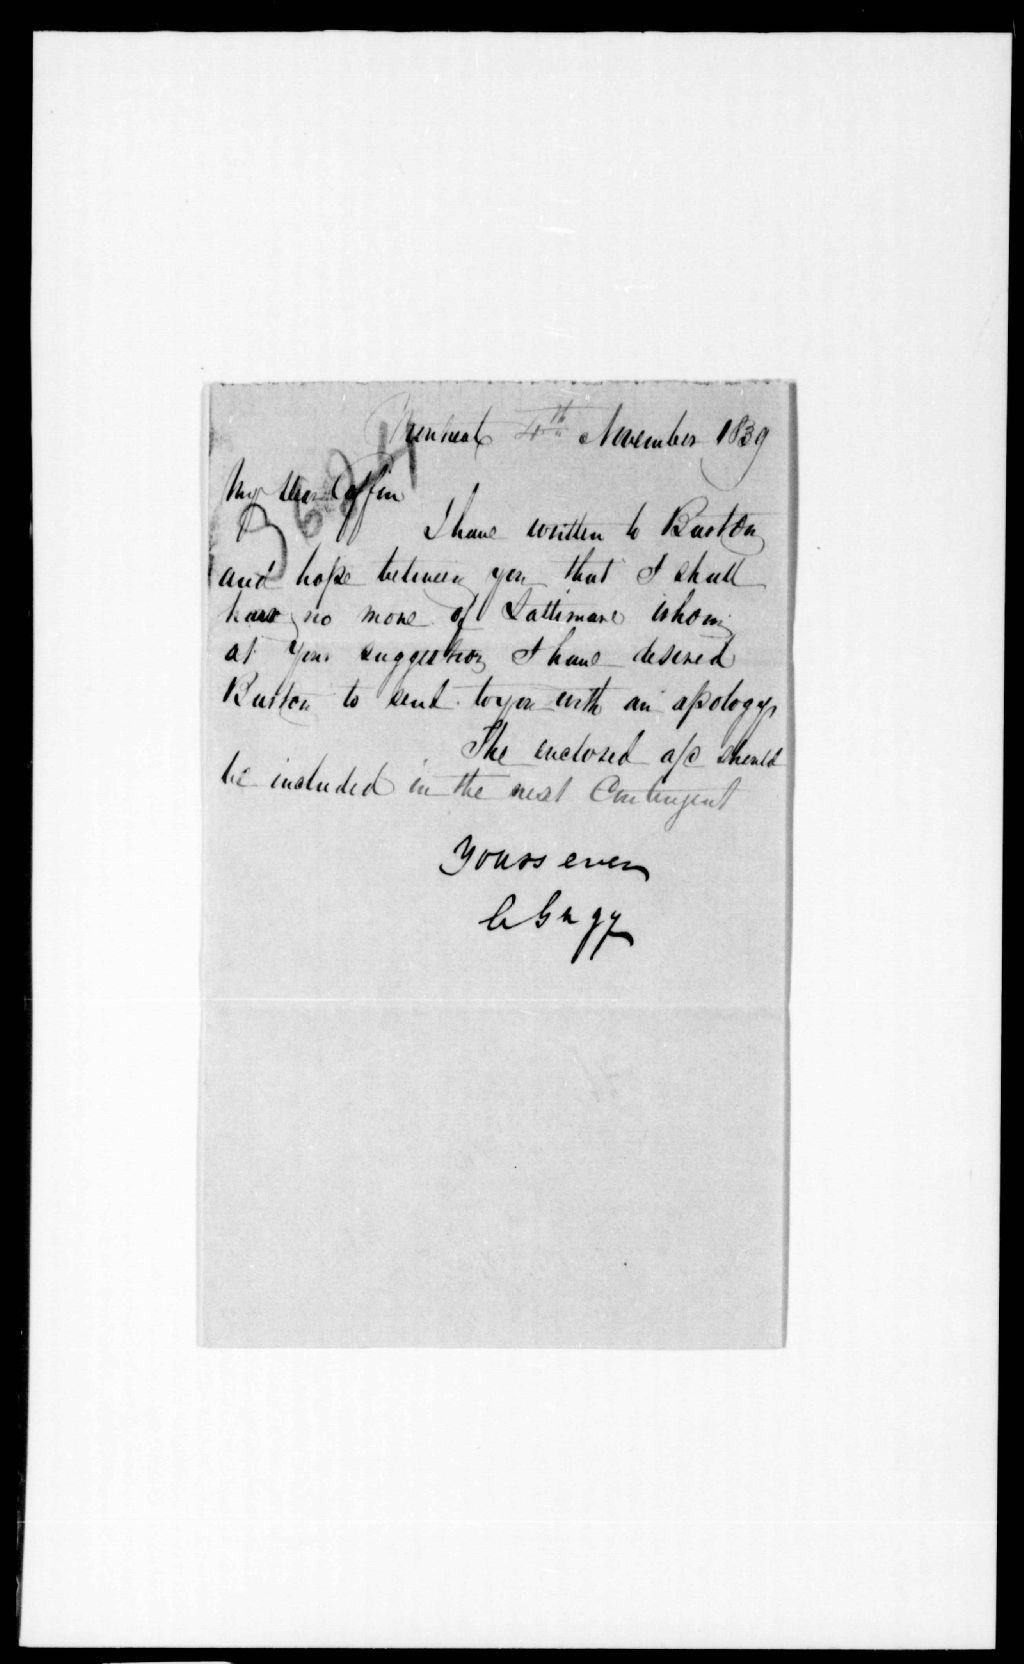 Montreal 4th November 1839
My Dear Coffin
I have written to Burton
and hope between you that I shall
hear no more of Lattimore whom
at your suggestion I have desired
Burton to send to you with an apology
The enclosed a/c should
be included in the next Contingent
Yours ever
C Gugy